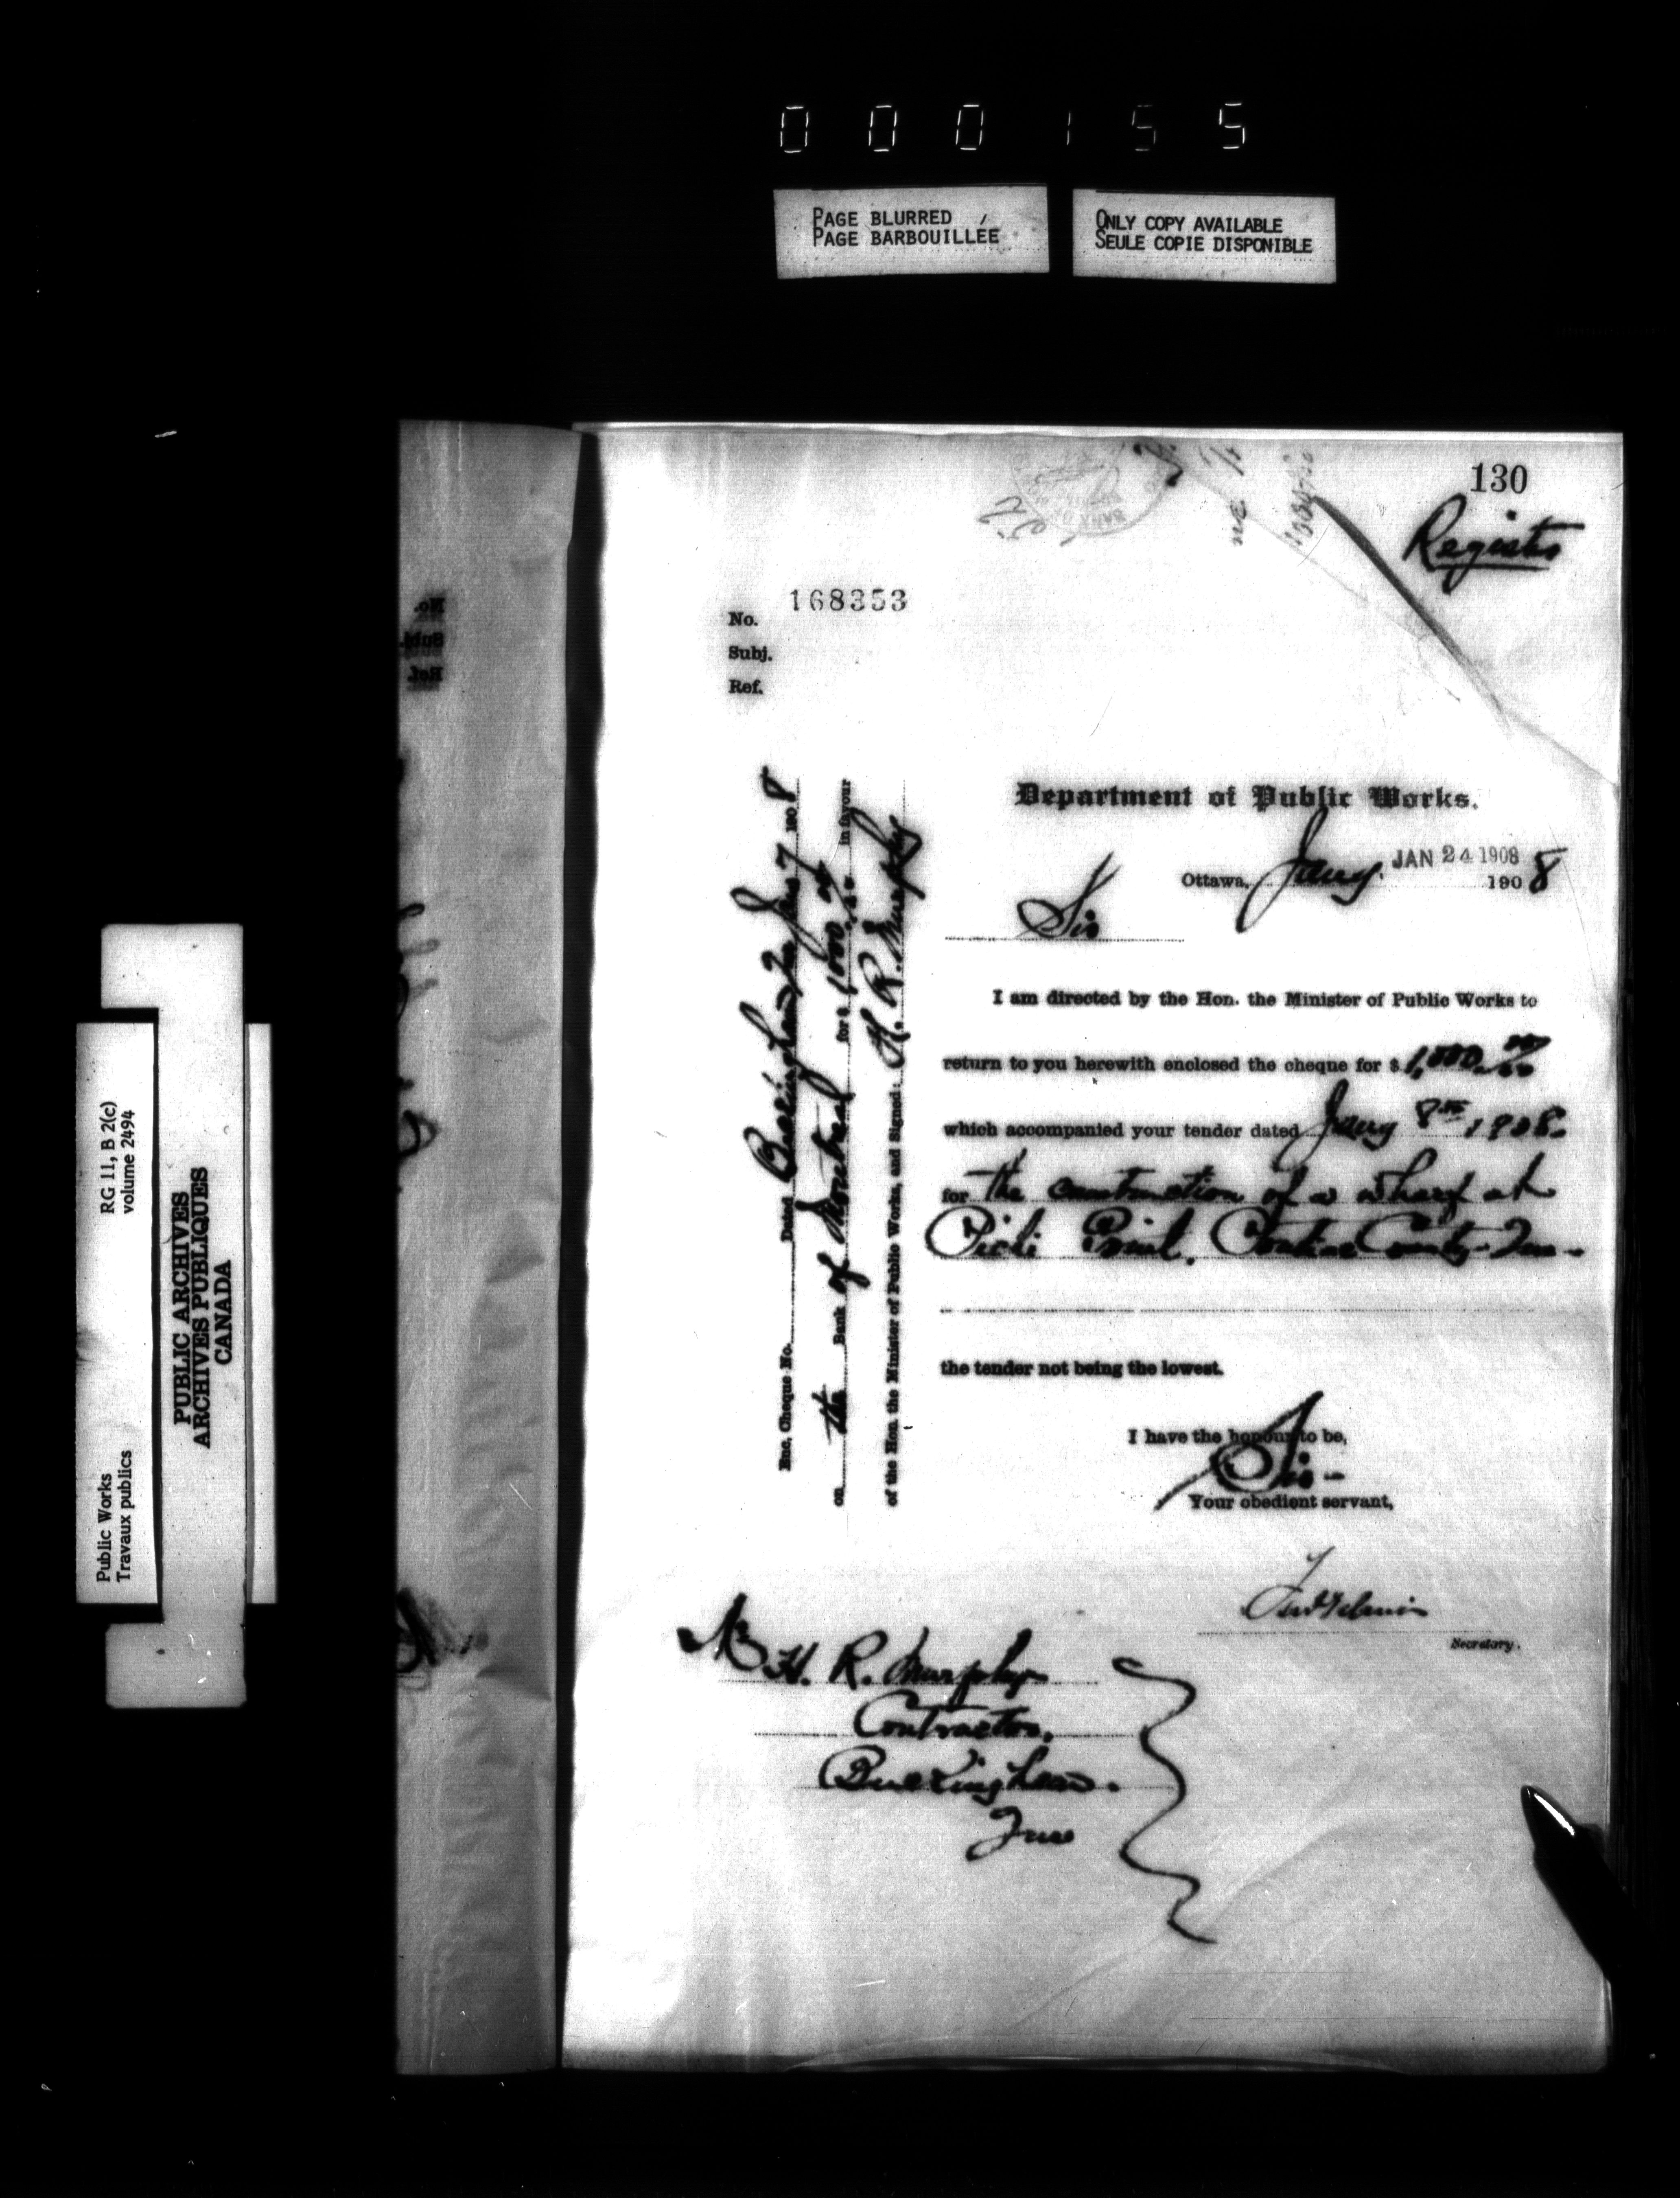 000155
PAGE BLURRED
PAGE BARBOUILLÉE
ONLY COPY AVAILABLE
SEULE COPIE DISPONIBLE
Public Works
Travaux publics
RG 11, B 2(c)
volume 2494
PUBLIC ARCHIVES
ARCHIVES PUBLIQUES
CANADA
130
Register
No. 168353
Subj.
Ref.
Department of Public Works.
Ottawa, Jany. JAN 24 1908 1908
Sir
I am directed by the Hon. the Minister of Public Works to
return to you herewith enclosed the cheque for $ 1,000.00/00
which accompanied your tender dated Jany 8th 1908.
for the construction of a wharf at
Point, Pontiac County Que-
the tender not being the lowest.
I have the honour to be,
Sir-
Your obedient servant,
Secretary.
Mr H. R. Murphy
Contractor,
Buckingham.
Que
Enc. Cheque No. Dated Buckingham Que Jan 7 1908
on the Bank of Montreal for $ 1000 in favour
of the Hon the Minister of Public Works, and Signed: H. R. Murphy